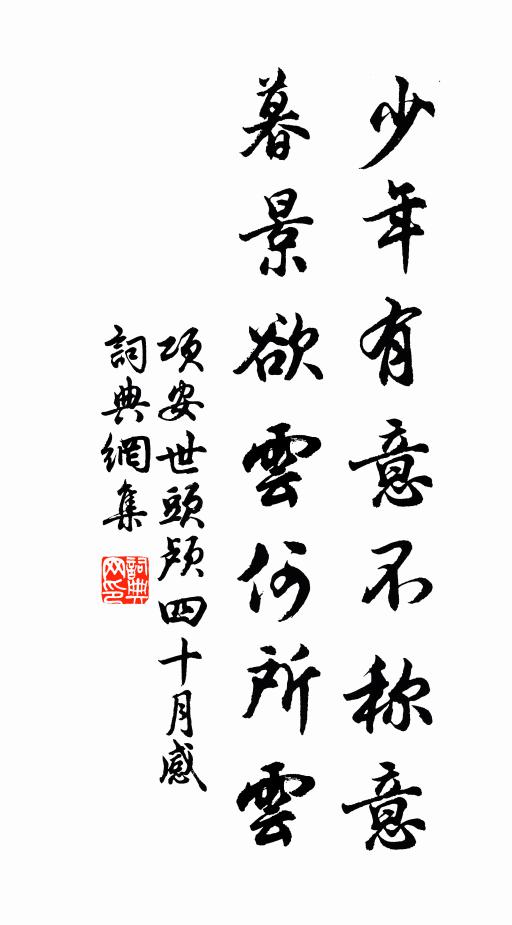 少年有意不称意
暮景欲雲何所雲
項安世頭顱四十月感
詞典網集
詞典網印